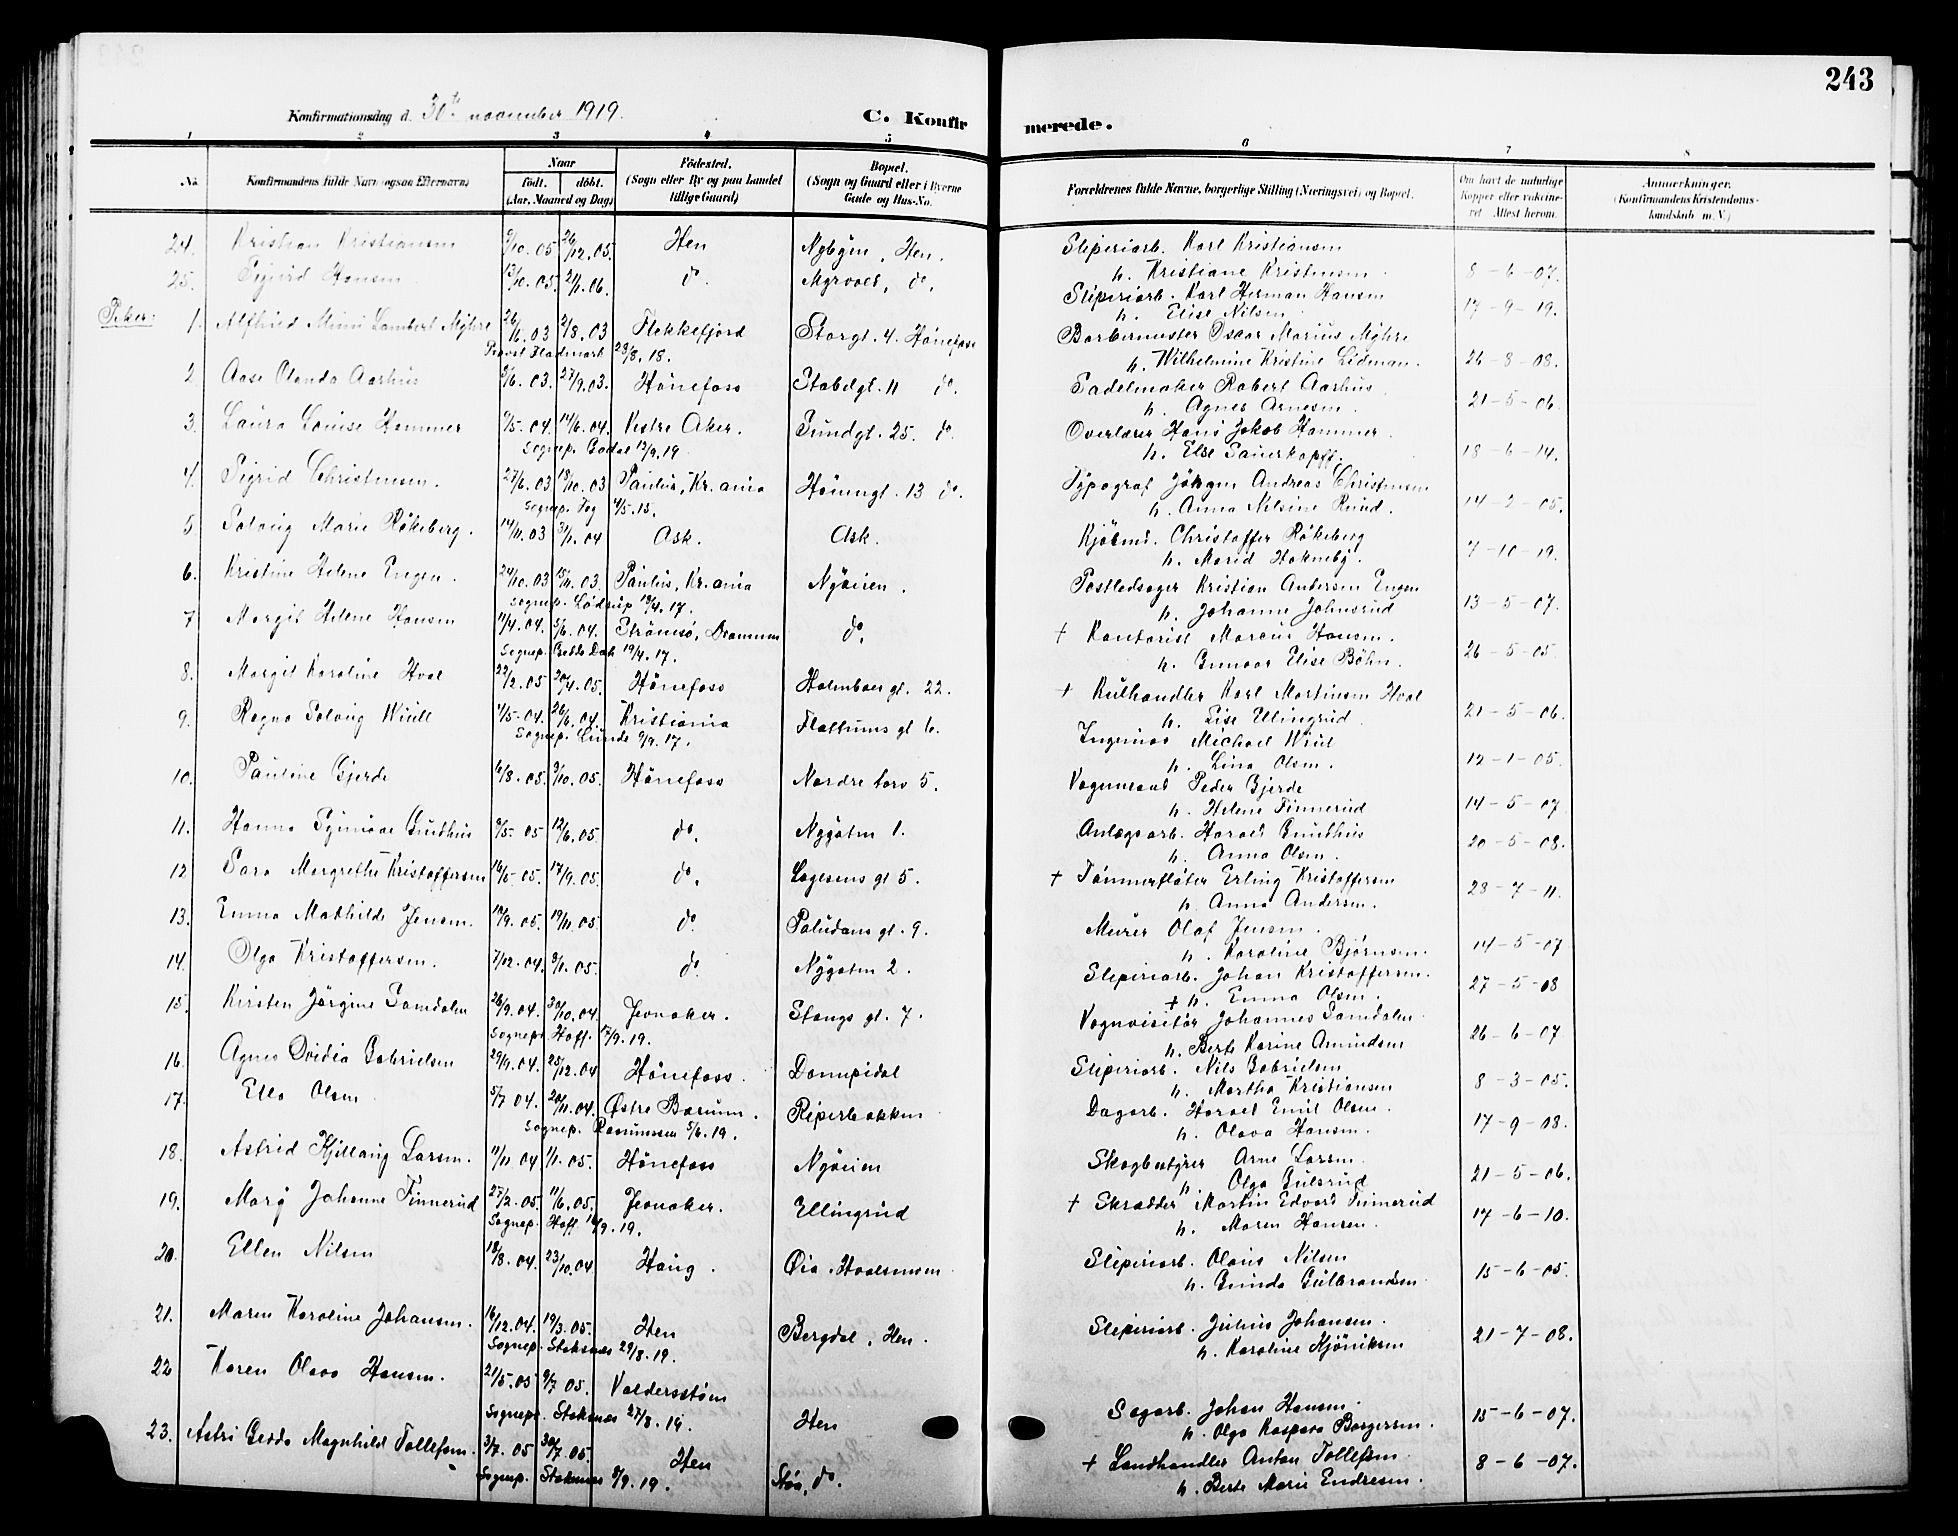 243
Konfirmationsdag d. 30te november 1919.
C. Konfirmerede.
1 2 3 4 5 6 7 8
No. Konfirmandens fulde Navn (ogsaa Efternavn)
Naar födt. döbt. (Aar, Maaned og Dag)
Födested. (Sogn eller By og paa Landet tillige Gaard)
Bopæl. (Sogn og Gaard eller i Byerne Gade og Hus-No.
Forældrenes fulde Navne, borgerlige Stilling (Næringsvei) og Bopæl.
Om havt de naturlige Kopper eller vakcineret. Attest herom.
Anmerkninger. (Konfirmandens Kristendomskundskab m. V.)
24. Kristian Kristiansen 9/10.05 26/12.05. Hen Nybyen, Hen. Sliperiarb. Karl Kristiansen
h. Kristiane Kristensen. 8-6-07.
25. Sigurd Hansen 13/10.05. 2/1.06. do. Myrvold, do. Sliperiarb. Karl Herman Hansen
h. Elise Nilsen 17-9-19.
Piker:
1. Alfhild Mimi Lambert Myhre 26/6.03 2/8.03 Flekkefjord Storgt. 4. Hönefoss Barbermester Oscar Marius Myhre
Provst Fladmark 28/8.18. h. Wilhelmine Kristine Lidman. 26-8-08.
2 Aase Olanda Aarhus 9/6.03. 27/9.03. Hönefoss Stabelgt. 11 do. Sadelmaker Robert Aarhus
h. Agnes Arnesen. 21-5-06.
3. Laura Louise Hammer 9/5.04. 14/6.04. Vestre Aker. Sundgt. 25. do. Overlærer Hans Jakob Hammer.
Sognep. Godal 12/9.19 h. Else Sauerkopff. 18-6-14.
4. Sigrid Christensen. 27/6.03 18/10.03 Paulus, Kr.ania Hönengt. 13 do. Typograf Jörgen Andreas Christensen
Sognep. Fog 4/5.15. h. Anna Nilsine Ruud. 14-2-05.
5 Solveig Marie Rökeberg. 14/11.03 3/1.04 Ask. Ask. Kjöbmd. Christoffer Rökeberg
h. Marid Hakneby. 7-10-19.
6. Kristine Helene Engen. 24/10.03 15/11.03. Paulus, Kr.ania Nyveien. Postledsager Kristian Andersen Engen
Sognep. Lödrup 18/4.17. h. Johanne Johnsrud 13-5-07.
7 Margit Helene Hansen 11/4.04. 5/6.04. Strömsö, Drammen do. † Kontorist Marius Hansen.
Sognep. Gedde Dah 19/4.17. h. Gunvor Elise Böhn. 26-5-05.
8. Margit Karoline Hval 22/2.05 20/4.05. Hönefoss Holmboes gt. 22. † Kulhandler Karl Martinsen Hval
h. Lise Ellingrud. 21-5-06.
9. Ragna Solveig Wiull 4/5-04. 26/6.04. Kristiania Flattums gt 6. Ingeniör Michael Wiul
Sognep. Lunde 9/9.17. h. Lina Olsen. 12-1-05.
10. Pauline Gjerde 6/8.05. 9/10.05. Hönefoss Nordre torv 5. Vognmand Peder Gjerde
h. Helene Finnerud 14-5-07
11. Hanna Synnöve Gudhus 9/5-05 12/6.05. do. Nygaten 1. Anlægsarb. Harald Gudhus
h. Anna Olsen. 20-5-08.
12 Sara Margrethe Kristoffersen 16/5-05. 17/9.05. do. Lagesens gt 5. † Tömmerfløter Erling Kristoffersen
h. Anna Andersen. 28-7-11.
13. Emma Mathilde Jensen. 18/9.05. 19/11.05 do. Paludans gt. 9. Murer Olaf Jensen.
h. Karoline Bjørnsen. 14-5-07
14. Olga Kristoffersen. 7/12.04. 8/1.05. do. Nygaten 2. Sliperiarb. Johan Kristoffersen.
† h. Emma Olsen. 27-5-08
15. Kirsten Jörgine Samdalen 26/9.04. 30/10.04. Jevnaker. Stangs gt. 7. Vognvisitör Johannes Samdalen
Sognepr. Hoff. 17/9.19. h. Berte Karine Amundsen 26-6-07
16. Agnes Ovidia Gabrielsen 29/9.04. 25/12.04 Hönefoss. Dompidal Sliperiarb. Nils Gabrielsen
h. Martha Kristiansen 8-3-05.
17. Ella Olsen 5/7 04. 20/11.04. Østre Bærum. Riperbakken Dagarb. Harald Emil Olsen.
Sognep. Rasmussen 5/6.19. h. Olava Hansen. 17-9-08.
18. Astrid Kjellaug Larsen. 11/11 04 1/1.05. Hönefoss Nyveien Skogbetjen Arne Larsen
h Olga Gulsrud 21-5-06.
19. Mary Johanne Finnerud 27/2.05. 11/6.05. Jevnaker. Ellingrud † Skrædder Martin Edvard Finnerud
Sognep. Hoff 16/9.19. h. Maren Hansen. 17-6-10.
20. Ellen Nilsen 18/8.04. 23/10.04 Haug. Øia. Hvalsmoen Sliperiarb. Olaus Nilsen
h. Gunda Gulbrandsen 15-6-05.
21. Maren Karoline Johansen. 16/12.04. 19/3.05. Hen Bergdal, Hen. Sliperiarb. Julius Johansen.
Sognep. Stoksnes 29/8.19. h. Karoline Kjöniksen 21-7-08.
22 Karen Olava Hansen. 21/5.05 9/7 05. Valdersstöen Hen Sagarb. Johan Hansen.
Sognepr. Stoksnes 27/8.19. h. Olga Kaspara Borgersen. 15-6-07.
23. Astri Gedda Magnhild Tollefsen. 3/7.05 30/7.05. Hen Stöa, do. † Landhandler Anton Tollefsen.
Sognep. Stoksnes 8/9.19. h. Berte Marie Endresen. 8-6-07.